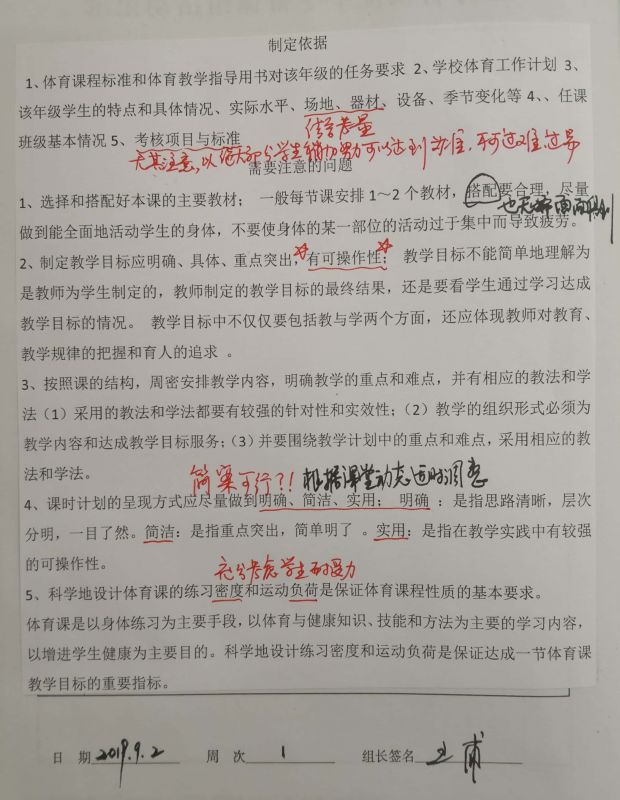 制定依据
1、体育课程标准和体育教学指导用书对该年级的任务要求 2、学校体育工作计划 3、
该年级学生的特点和具体情况、实际水平、场地、器材、设备、季节变化等 4、、任课
班级基本情况 5、考核项目与标准
尤其注意,以绝大部分学生稍加努力可以达到为准,不可过难、过易
需要注意的问题
1、选择和搭配好本课的主要教材; 一般每节课安排 1~2 个教材,搭配要合理,尽量
做到能全面地活动学生的身体,不要使身体的某一部位的活动过于集中而导致疲劳。
2、制定教学目标应明确、具体、重点突出,有可操作性; 教学目标不能简单地理解为
是教师为学生制定的,教师制定的教学目标的最终结果,还是要看学生通过学习达成
教学目标的情况。 教学目标中不仅仅要包括教与学两个方面,还应体现教师对教育、
教学规律的把握和育人的追求 。
3、按照课的结构,周密安排教学内容,明确教学的重点和难点,并有相应的教法和学
法(1)采用的教法和学法都要有较强的针对性和实效性;(2)教学的组织形式必须为
教学内容和达成教学目标服务;(3)并要围绕教学计划中的重点和难点,采用相应的教
法和学法。
简案可行?! 根据课堂动态适时调整
4、课时计划的呈现方式应尽量做到明确、简洁、实用; 明确 :是指思路清晰,层次
分明,一目了然。简洁:是指重点突出,简单明了 。实用:是指在教学实践中有较强
的可操作性。
充分考虑学生耐受力
5、科学地设计体育课的练习密度和运动负荷是保证体育课程性质的基本要求。
体育课是以身体练习为主要手段,以体育与健康知识、技能和方法为主要的学习内容,
以增进学生健康为主要目的。科学地设计练习密度和运动负荷是保证达成一节体育课
教学目标的重要指标。
日 期 2019.9.2 周 次 1 组长签名 王甫